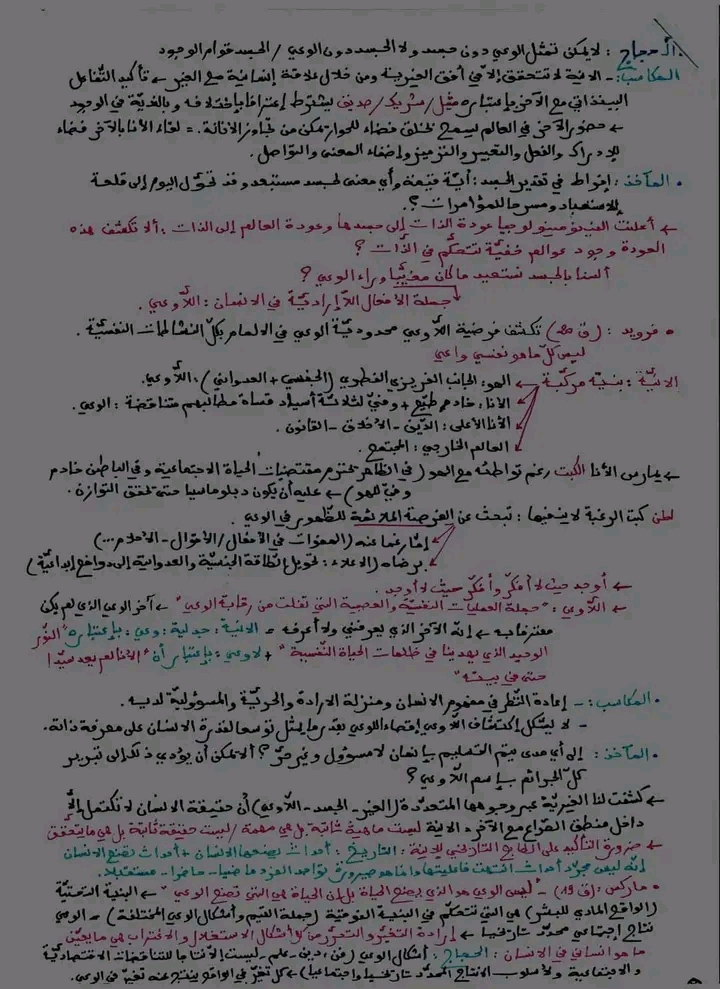 الحجاج : لا يمكن تمثل الوعي دون جسد ولا الجسد دون الوعي / الجسد قوام الوجود
المكاسب: - الانية لا تتحقق إلا في أفق الغيرية ومن خلال علاقة إنسانية مع الغير ← تأكيد التفاعل
البينذاتي مع الآخر بإعتباره مثيل/شريك/صديق يشترط إعترافا بإختلافه وبالغيرية في الوجود
← حضور الآخر في العالم يسمح بخلق فضاء للحوار يمكن من تجاوز الانانة. = لقاء الأنا بالآخر فضاء
للإدراك والفعل والتعبير والترميز وإضفاء المعنى والتواصل.
• المآخذ : إفراط في تقدير الجسد : أية قيمة وأي معنى لجسد مستبعد وقد تحول اليوم إلى قلعة
للإستعباد ومسرحا للمؤامرات ؟.
← أعلنت الفينومينولوجيا عودة الذات إلى جسدها وعودة العالم إلى الذات : ألا تكشف هذه
العودة وجود عوالم خفية تتحكم في الذات ؟
ألسنا بالجسد نستعيد ما كان مغيبا وراء الوعي ؟
جملة الأفعال اللاإرادية في الانسان : اللاوعي.
• فرويد : (ق 20) تكشف فرضية اللاوعي محدودية الوعي في الالمام بكل النشاطات النفسية.
ليس كل ما هو نفسي واعي
الانية : بنية مركبة ← الهو : الجانب الغريزي الفطري (الجنسي + العدواني) : اللاوعي.
الانا : خادم مطيع + وفي لثلاثة أسياد قساة مطالبهم متناقضة : الوعي.
الأنا الأعلى : الدين - الأخلاق - القانون.
العالم الخارجي : المجتمع.
← يمارس الأنا الكبت رغم تواطئه مع الهو (في الظاهر يحترم مقتضيات الحياة الاجتماعية وفي الباطن خادم
وفي للهو) ← عليه أن يكون دبلوماسيا حتى يحقق التوازن.
لكن كبت الرغبة لا ينفيها : تبحث عن الفرصة الملائمة للظهور في الوعي.
إما رغما عنه (الهفوات في الأفعال/الأقوال - الأحلام...)
برضاه (الاعلاء : تحويل الطاقة الجنسية والعدوانية إلى دوافع إبداعية)
← أوجد حيث لا أفكر وأفكر حيث لا أوجد.
← اللاوعي : "جملة العمليات النفسية والعصبية التي تفلت من رقابة الوعي" ← آخر الوعي الذي لم يكن
معترفا به ← إنه الآخر الذي يعرفني ولا أعرفه = الانية : جدلية : وعي : بإعتباره "النور
الوحيد الذي يهدينا في ظلمات الحياة النفسية" + لا وعي : بإعتبار أن "الأنا لم يعد سيدا
حتى في بيته"
• المكاسب: - إعادة النظر في مفهوم الانسان ومنزلة الارادة والحرية والمسؤولية لديه.
- لا يشكل إكتشاف اللاوعي إقصاء للوعي بقدر ما يمثل توسعا لقدرة الانسان على معرفة ذاته.
• المآخذ : إلى أي مدى يتم التسليم بإنسان لا مسؤول وغير حر ؟ ألا يمكن أن يؤدي ذلك إلى تبرير
كل الجرائم بإسم اللاوعي ؟
← كشفت لنا الغيرية عبر وجوهها المتعددة (الغير - الجسد - اللاوعي) أن حقيقة الانسان لا تكتمل إلا
داخل منطق الصراع مع الآخر. الانية ليست ماهية ثابتة بل هي مهمة / ليست حقيقة ثابتة بل هي ما يتحقق
← ضرورة التأكيد على الطابع التاريخي للإنية : التاريخ : أحداث يصنعها الانسان + أحداث تصنع الانسان
إنه ليس مجرد أحداث انتهت فاعليتها وإنما هو صيرورة تواجد الفرد ماضيا - حاضرا - مستقبلا.
• ماركس : (ق 19) - "ليس الوعي هو الذي يصنع الحياة بل إن الحياة هي التي تصنع الوعي" ← البنية التحتية
(الواقع المادي للبشر) هي التي تتحكم في البنية الفوقية (جملة القيم وأشكال الوعي المختلفة) = الوعي
نتاج إجتماعي محدد تاريخيا ← إرادة التغيير والتحرر من كل أشكال الاستغلال والاغتراب هي ما يعين
ما هو إنساني في الانسان : الحجاج : أشكال الوعي (فن، دين - علم - ليست إلا نتاجا للتناقضات الاقتصادية
والاجتماعية ولأسلوب الانتاج المحدد تاريخيا وإجتماعيا) ← كل تغير في الواقع ينتج عنه تغير في الوعي.